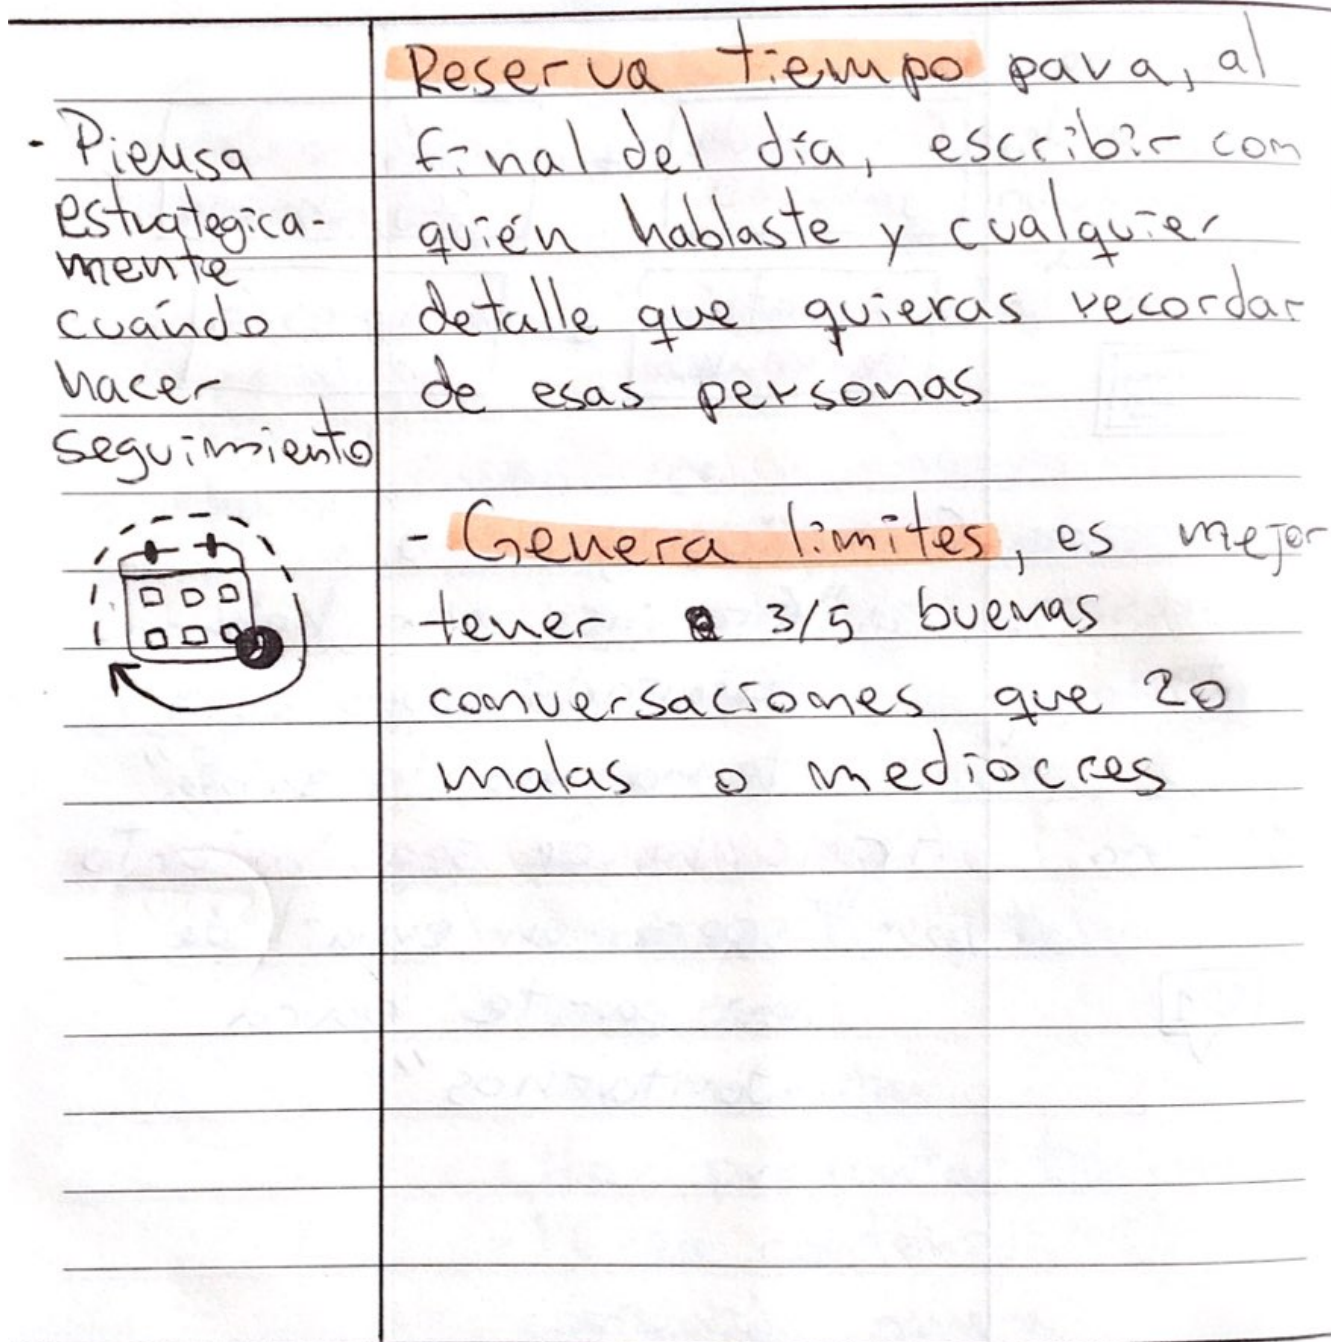 - Piensa
estrategica-
mente
cuándo
hacer
seguimiento
Reserva tiempo para, al
final del día, escribir con
quién hablaste y cualquier
detalle que quieras recordar
de esas personas
- Genera limites, es mejor
tener 3/5 buenas
conversaciones que 20
malas o mediocres